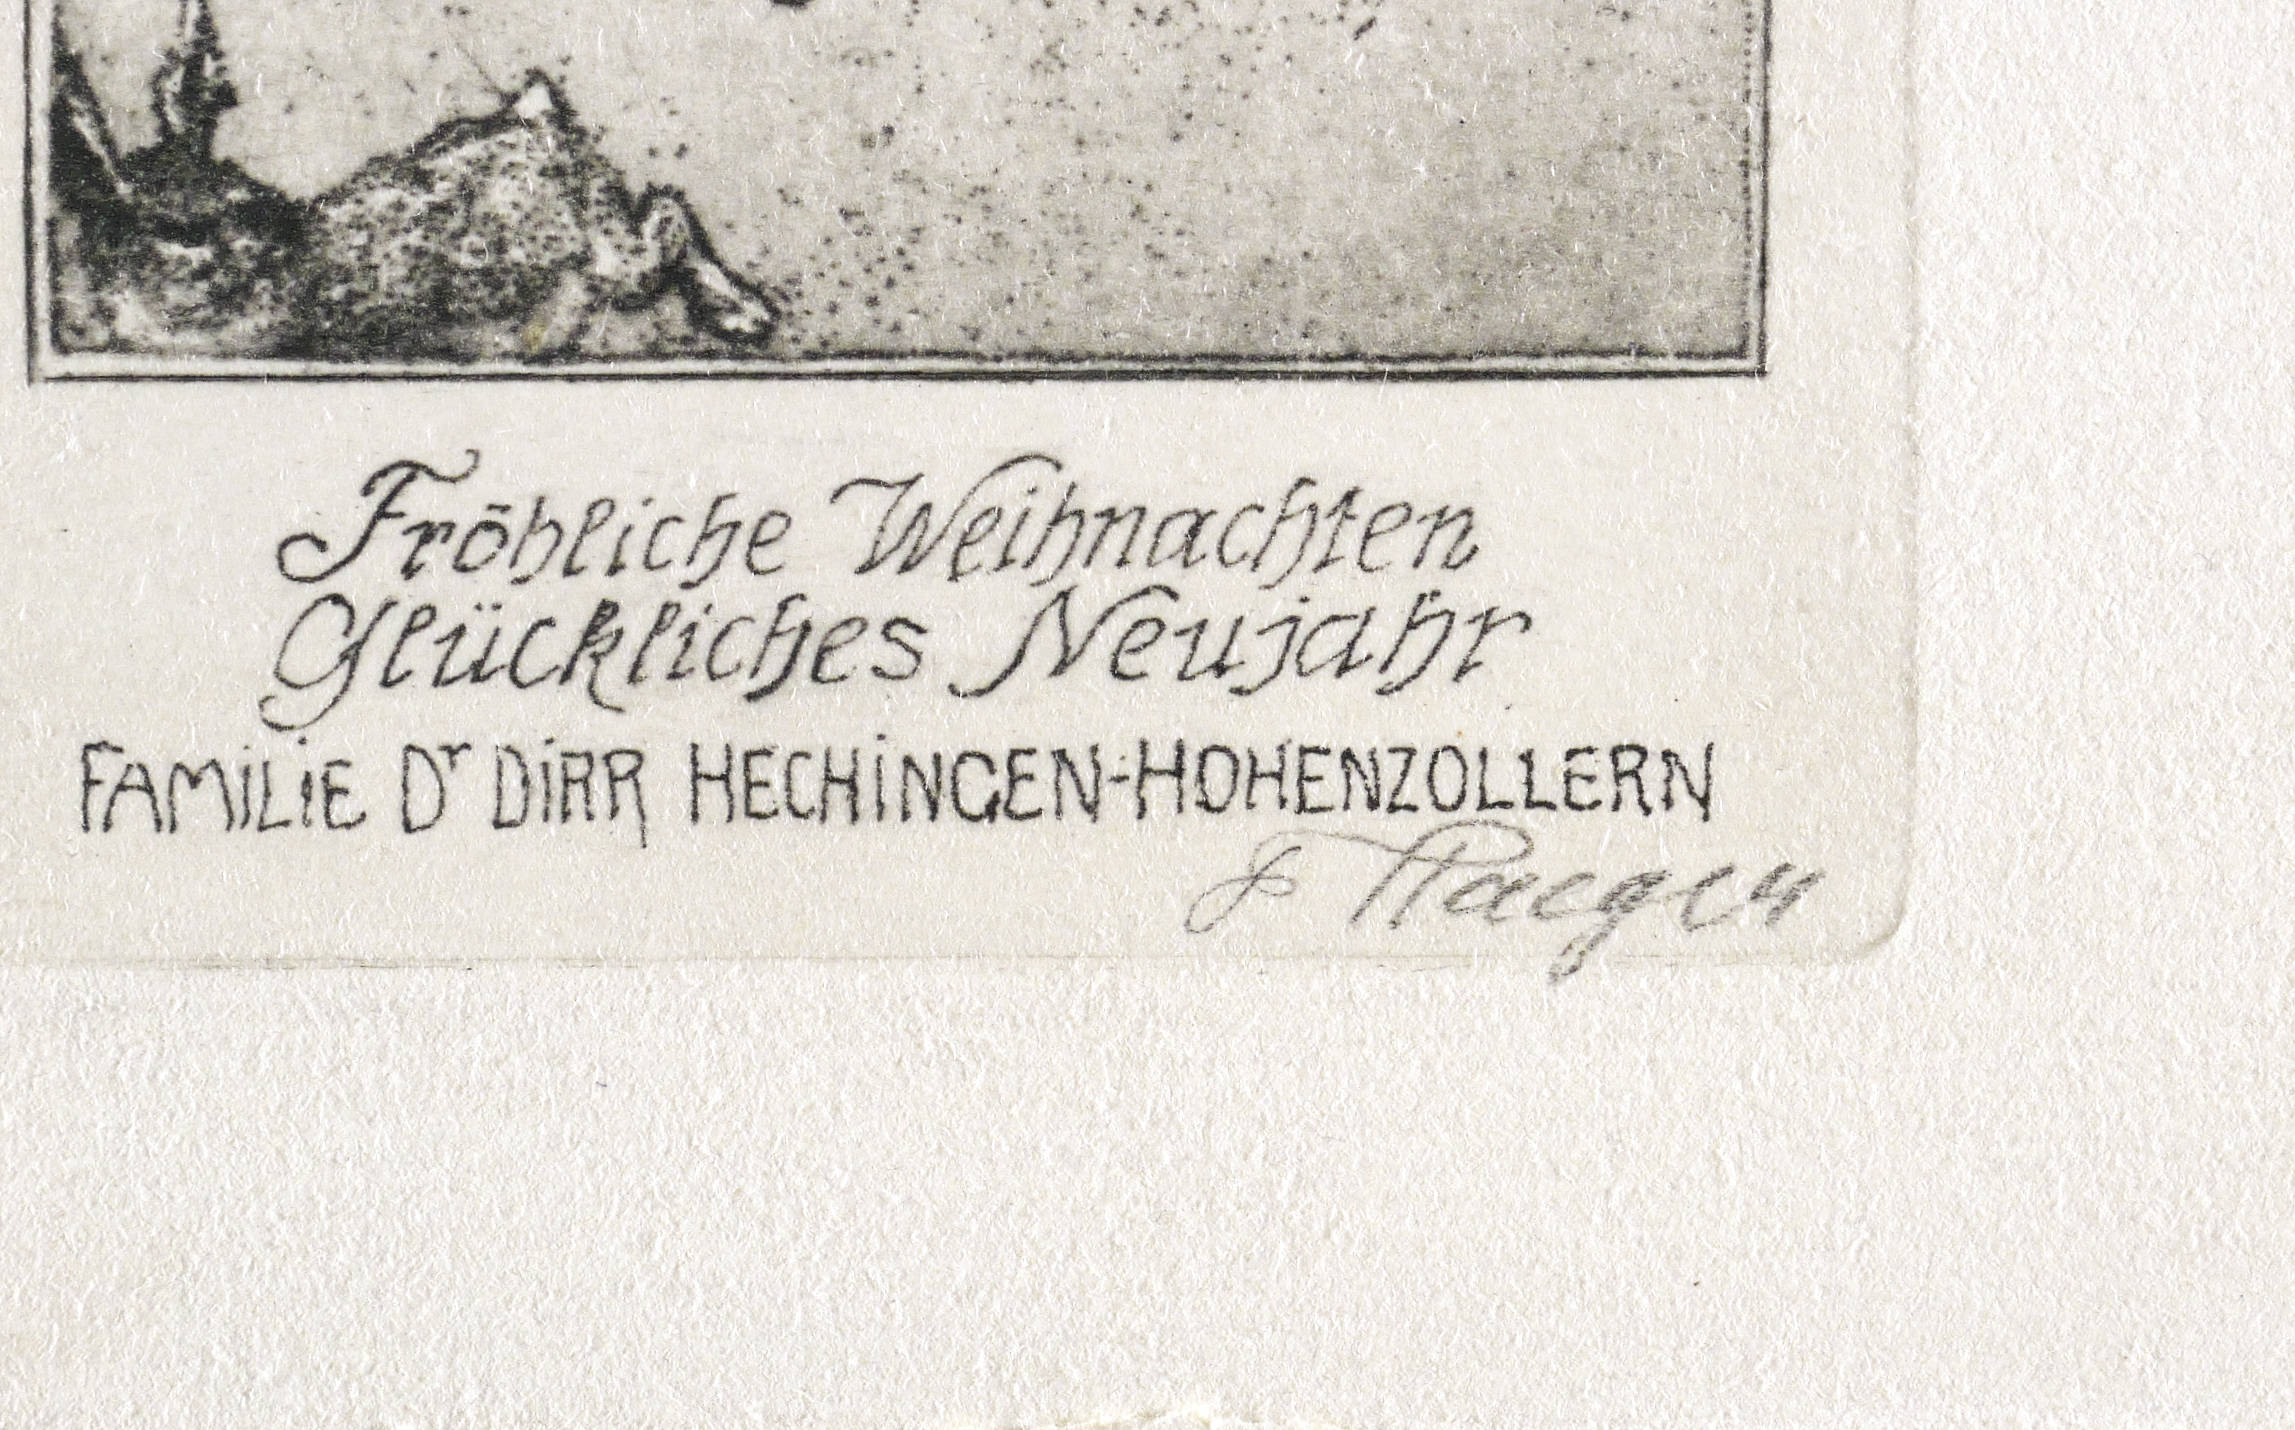 Fröhliche Weihnachten
Glückliches Neujahr
FAMiLiE Dr DiRR HECHiNGEN-HOHENZOLLERN